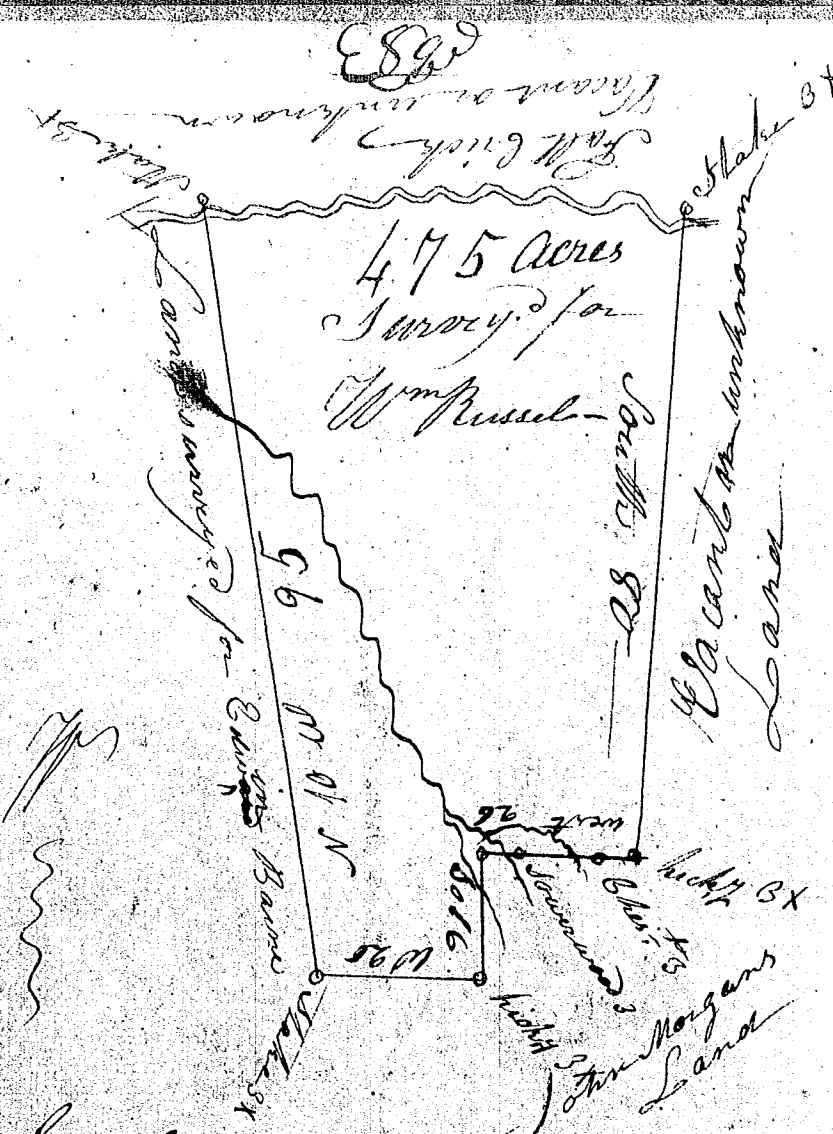 Vacant or unknown
Fall Crick
Stake 3x
Stake 3x
475 Acres
Survey.d for
Wm Russel
South 80
Vacant or unknown
Land
Land surveyed for Edwin Barne
N 10 W 95
west 26
So 16
W 20
hickry 3x
Chest. 3x
Sourwood 3
hickry 3
Stake 3x
John Morgans
Land